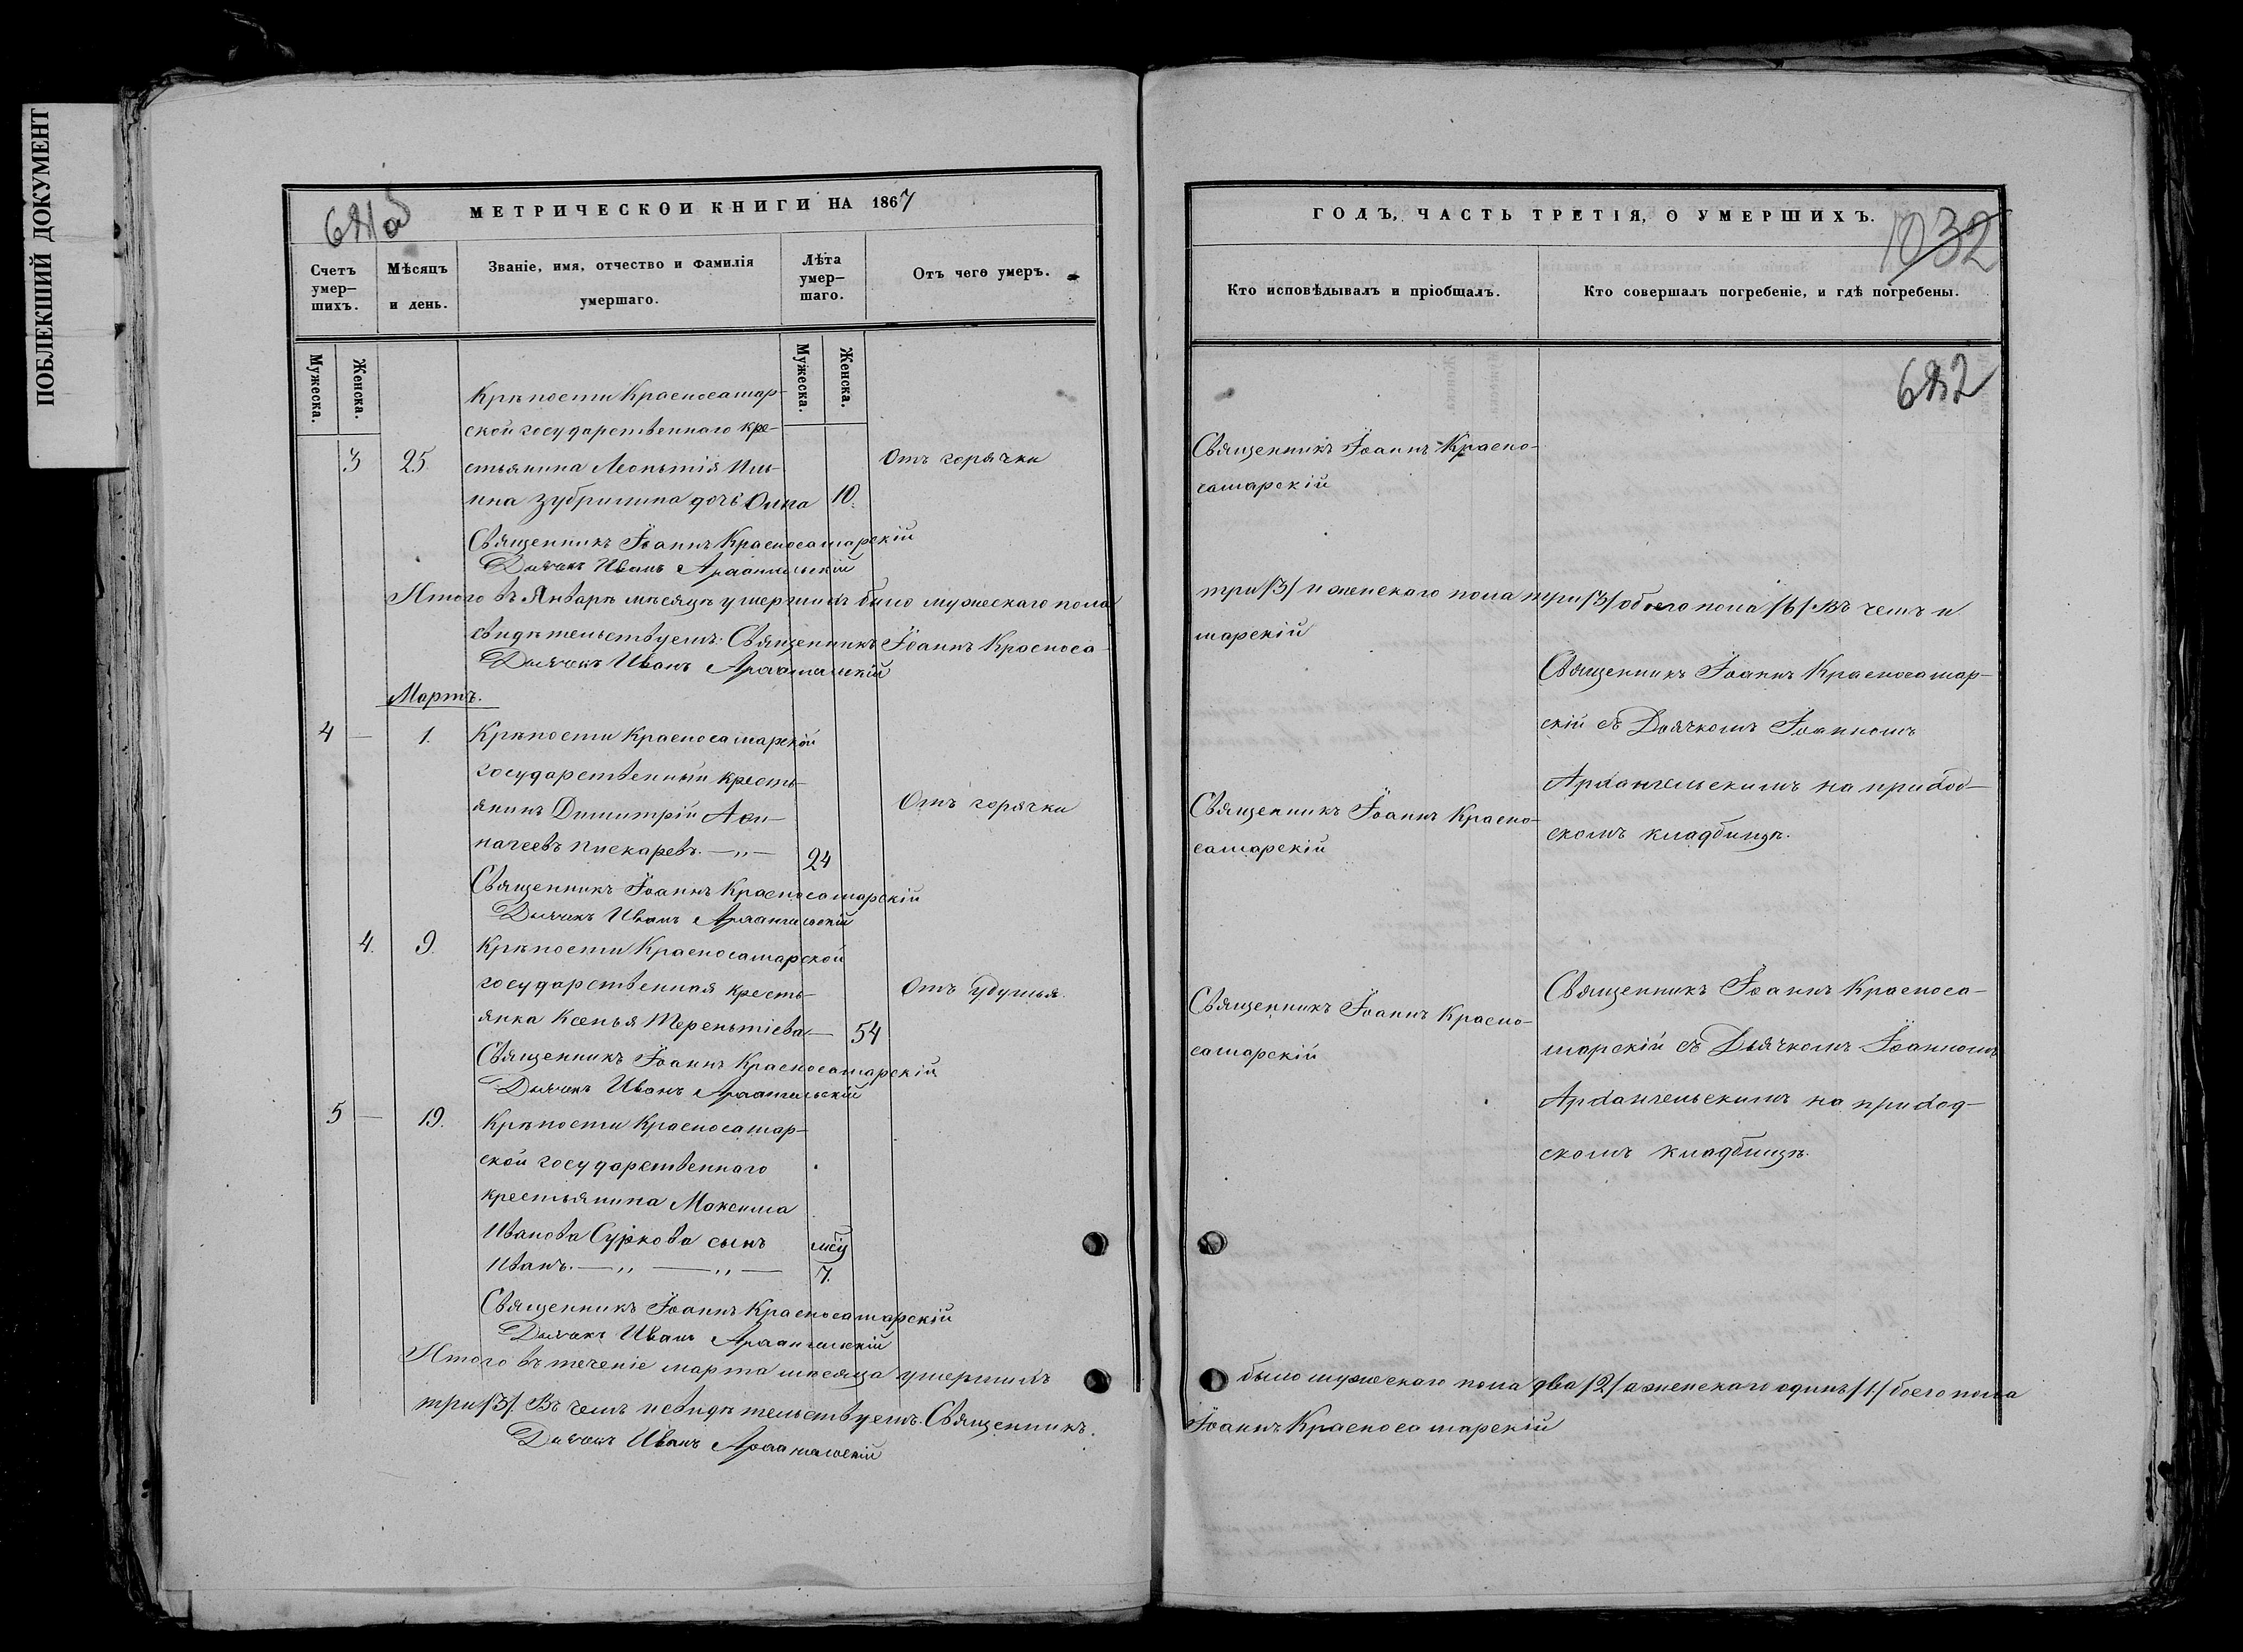 ПОБЛЕКШИЙ ДОКУМЕНТ
МЕТРИЧЕСКОЙ КНИГИ НА 1867
Счетъ умер-шихъ.
Мѣсяцъ и день.
Званіе, имя, отчество и фамилія умершаго.
Лѣта умер-шаго.
Отъ чего умеръ.
Мужеска.
Женска.
Мужеска.
Женска.
Крѣпости Красносамар-
ской государственнаго кре-
3 25 стьянина Леонтія Иль- Отъ горячки
ина Зубринина дочь Анна 10.
Священникъ Іоаннъ Красносамарскій
Дьячекъ Иванъ Архангельскій
Итого въ Январѣ мѣсяцѣ умершихъ было мужескаго пола
свидѣтельствуемъ: Священникъ Іоаннъ Красноса-
Дьячекъ Иванъ Архангельскій
Мартъ.
4 — 1. Крѣпости Красносамарской
государственный кресть-
янинъ Димитрій Отъ горячки
Пискаревъ. —„— 24
Священникъ Іоаннъ Красносамарскій
Дьячекъ Иванъ Архангельскій
4. 9. Крѣпости Красносамарской
государственная кресть- Отъ удушья.
янка Ксенья Терентіева — 54
Священникъ Іоаннъ Красносамарскій
Дьячекъ Иванъ Архангельскій
5 — 19. Крѣпости Красносамар-
ской государственнаго
крестьянина Максима
Иванова Суркова сынъ мѣц
Иванъ. —„ —„— 7.
Священникъ Іоаннъ Красносамарскій
Дьячекъ Иванъ Архангельскій
Итого въ теченіе марта мѣсяца умершихъ
три /3/. Въ чемъ и свидѣтельствуемъ. Священникъ.
Дьячекъ Иванъ Архангельскій
ГОДЪ, ЧАСТЬ ТРЕТІЯ, О УМЕРШИХЪ.
1032
Кто исповѣдывалъ и пріобщалъ.
Кто совершалъ погребеніе, и гдѣ погребены.
Священникъ Іоаннъ Красно-
самарскій
три /3/ и женскаго пола три /3/ обоего пола /6/. Въ чемъ и
марскій
Священникъ Іоаннъ Красносамар-
скій съ Дьячкомъ Іоанномъ
Архангельскимъ на приход-
скомъ кладбищѣ.
Священникъ Іоаннъ Красно-
самарскій
Священникъ Іоаннъ Красно-
самарскій
Священникъ Іоаннъ Красноса-
марскій съ Дьячкомъ Іоанномъ
Архангельскимъ на приход-
скомъ кладбищѣ.
было мужескаго пола два /2/ а женскаго одинъ /1/ боего пола
Іоаннъ Красносамарскій